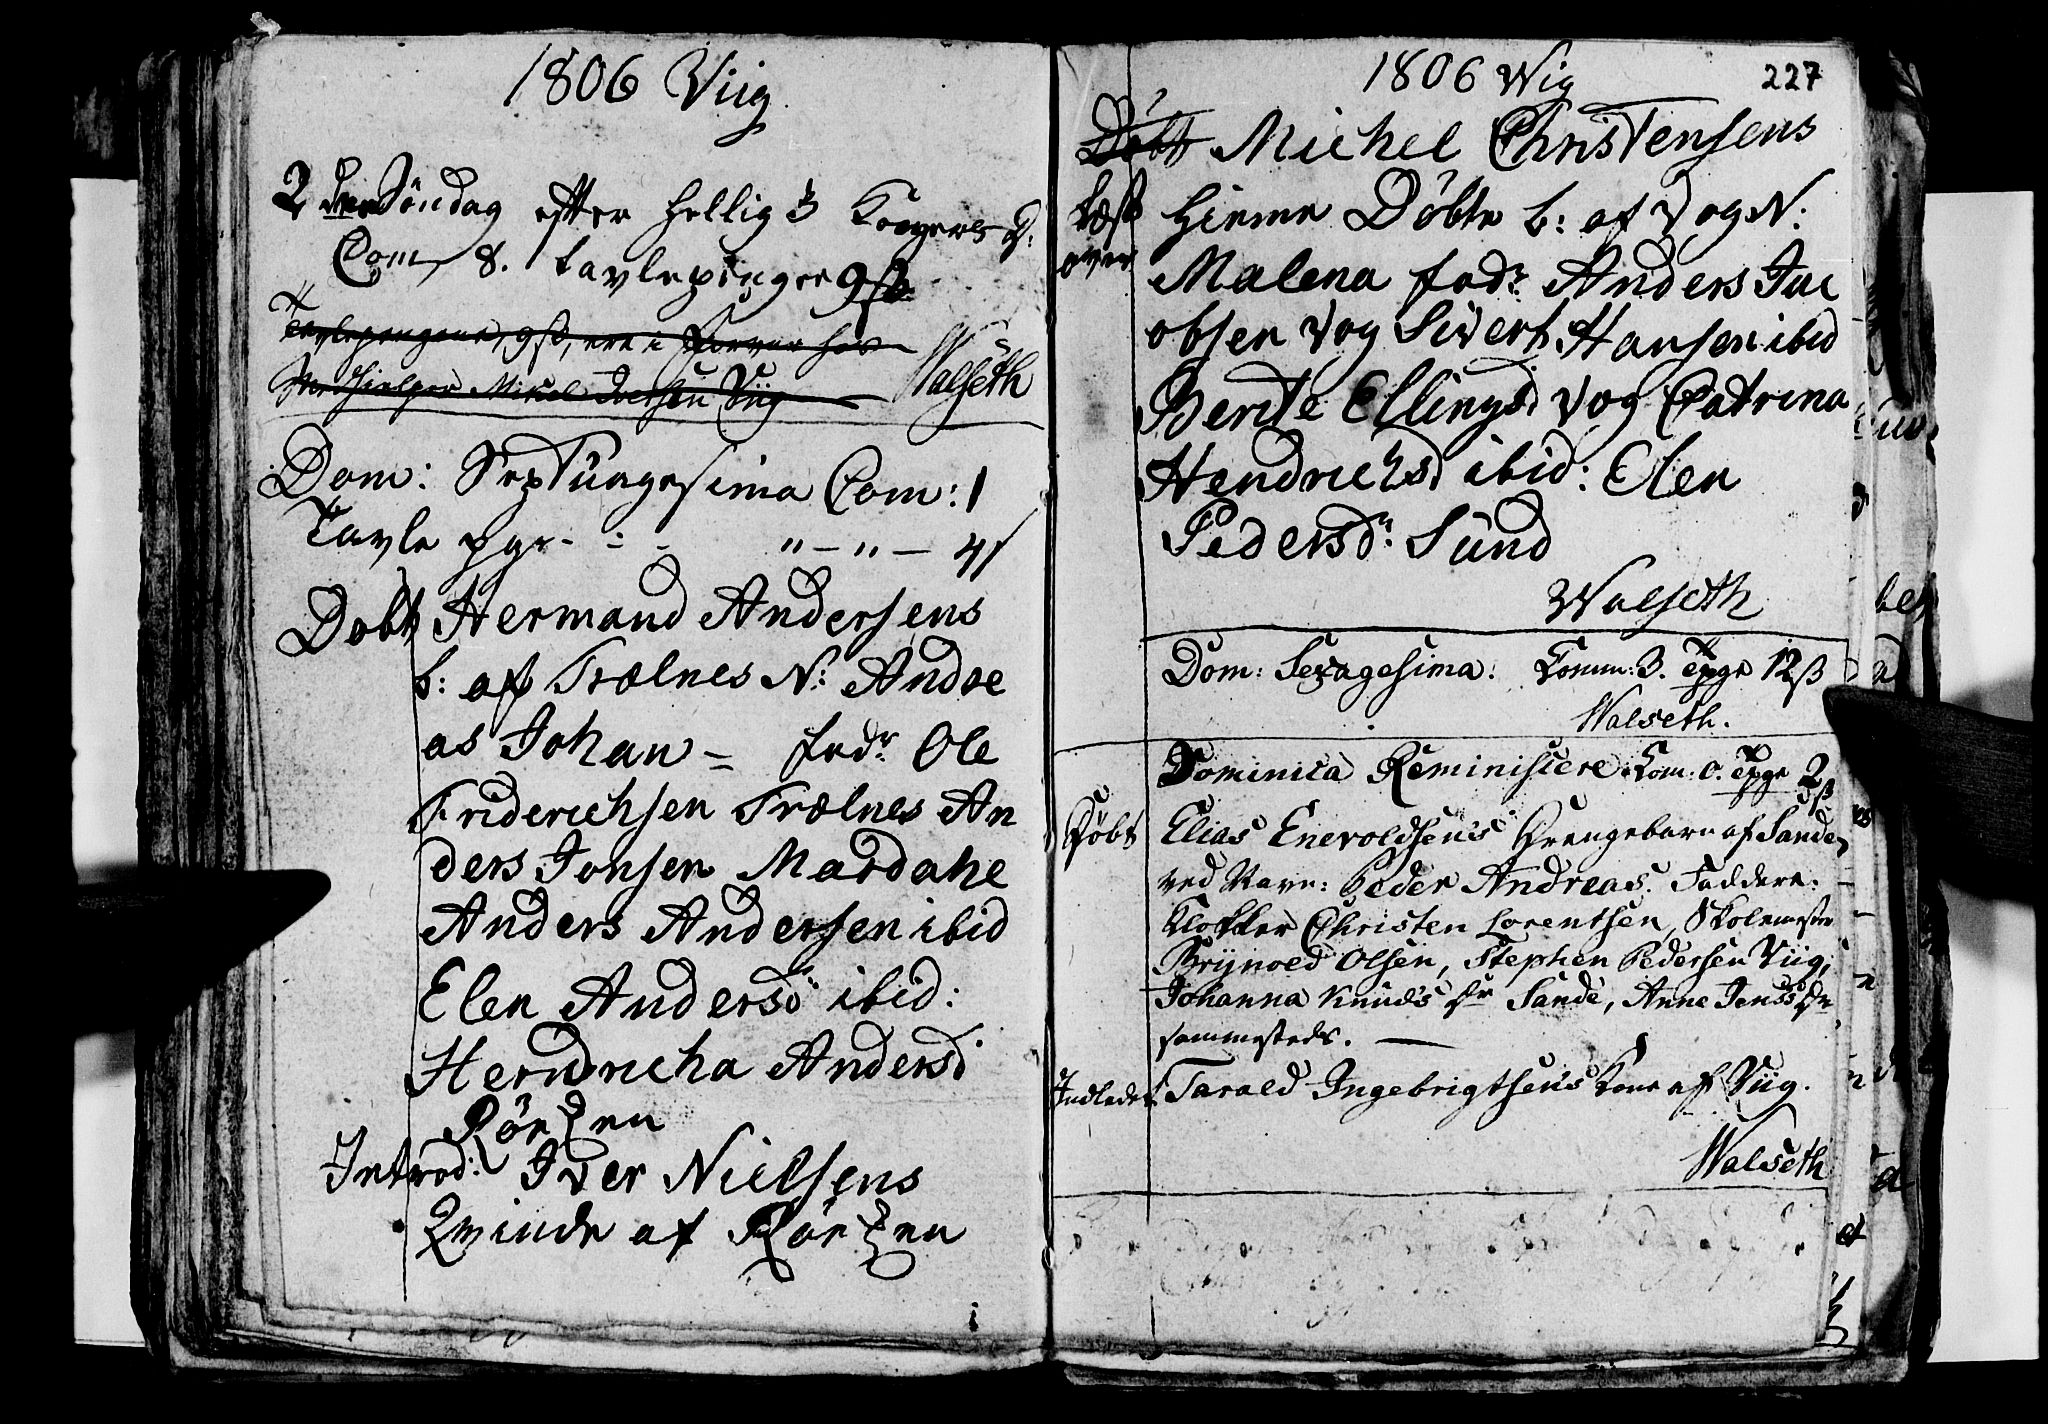 1806 Viig
2den Søndag efter Hellig 3 Kongers D:
Com 8. Tavlepenger 9ß
Tavlepengene, 9ß, ere i Forvar hos
Medhielper Mikel Iversen Viig
Walseth
Dom: Septungesima Com: 1
Tavle pgr - " - " - 4ß
Døbt Hermand Andersens
b: af Trælnes N: Andre
as Johan = fadr Ole
Friderichsen Trælnes An
ders Jonsen Mardahe
Anders Andersen ibid
Elen Andersd ibid:
Hendricha Andersd
Rørøen
Introd: Iver Nielsens
Qvinde af Rørøen
1806 Wig 227
Døbt Michel Christensens
læst over
Hieme Døbte b: af Vog N:
Malena fadr Anders Jac
obsen Vog Sivert Hansen ibid
Berite Ellingsd Vog Catrina
Hendrichsd ibid: Elen
Pedersdr Sund
Walseth
Dom: Sexagesima: Comm: 3. Tpge 12ß
Walseth.
Dominica Reminiscere. Com: 0. Tpge 2ß
Døbt Elias Enevoldsen's Drengebarn af Sande,
ved Navn: Peder Andreas. Faddere:
Klokker Christen Lorentsen, Skolemester
Brynold Olsen, Stephen Pedersen Viig,
Johanna Knud's Dr Sande, Anne Jens's Dr
sammesteds.
Indledet. Tarald Ingebrigtsen's Kone af Viig.
Walseth